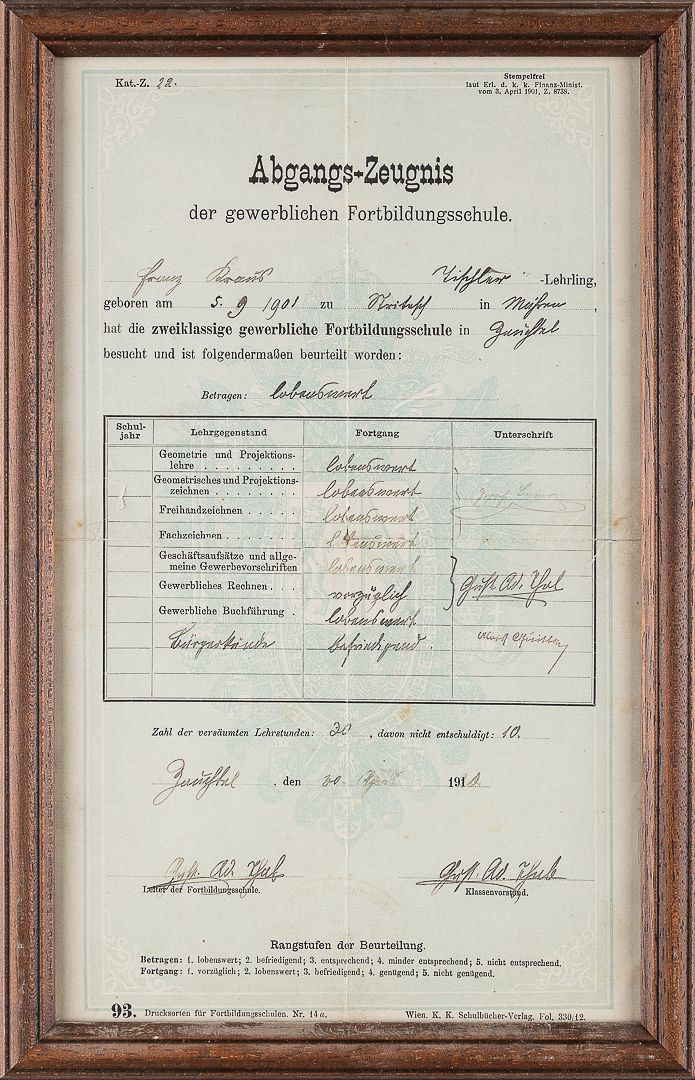 Kat.-Z. 22.
Stempelfrei
laut Erl. d. k. k. Finanz-Minist.
vom 3. April 1901, Z. 8738.
Abgangs-Zeugnis
der gewerblichen Fortbildungsschule.
Franz Kraus Tischler -Lehrling,
geboren am 5. 9 1901 zu in Mähren,
hat die zweiklassige gewerbliche Fortbildungsschule in Zauchtel
besucht und ist folgendermaßen beurteilt worden:
Betragen: lobenswert
Schul-jahr Lehrgegenstand Fortgang Unterschrift
Geometrie und Projektions-
lehre . . . . . . . . . . lobenswert
Geometrisches und Projektions-
zeichnen . . . . . . . . lobenswert
Freihandzeichnen . . . . . . lobenswert
Fachzeichnen . . . . . . . . lobenswert
Geschäftsaufsätze und allge-
meine Gewerbevorschriften lobenswert
Gewerbliches Rechnen . . . vorzüglich Gust. Ad.
Gewerbliche Buchführung . lobenswert
Bürgerkunde befriedigend.
Zahl der versäumten Lehrstunden: 30, davon nicht entschuldigt: 10.
Zauchtel, den 30. April 191
Gust. Ad. Gust. Ad.
Leiter der Fortbildungsschule. Klassenvorstand.
Rangstufen der Beurteilung.
Betragen: 1. lobenswert; 2. befriedigend; 3. entsprechend; 4. minder entsprechend; 5. nicht entsprechend.
Fortgang: 1. vorzüglich; 2. lobenswert; 3. befriedigend; 4. genügend; 5. nicht genügend.
93. Drucksorten für Fortbildungsschulen. Nr. 14 a. Wien. K. K. Schulbücher-Verlag. Fol. 330/12.